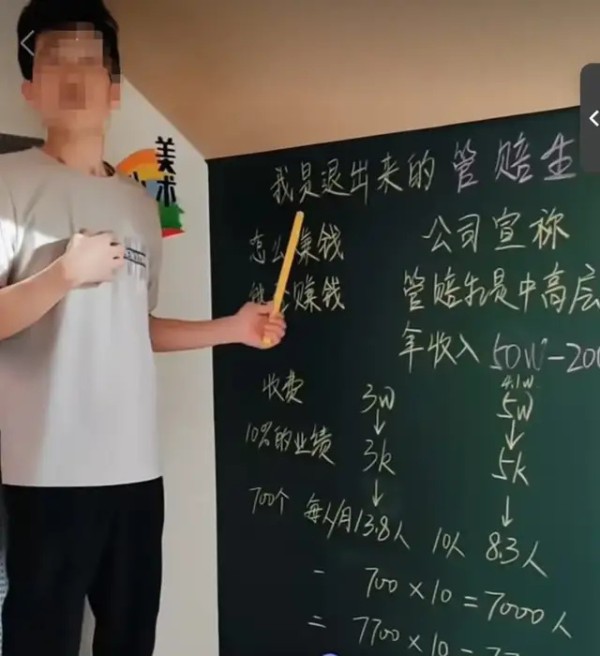 美术
我是退出来的管赔生
怎么赚钱 公司宣称
赚钱 管赔生是中高层
年收入 50W-200
4.1W
收费 3W 5W
10%的业绩 3k 5k
700个 每人/月13.8人 10人 8.3人
- 700×10=7000人
= 7700×10=77